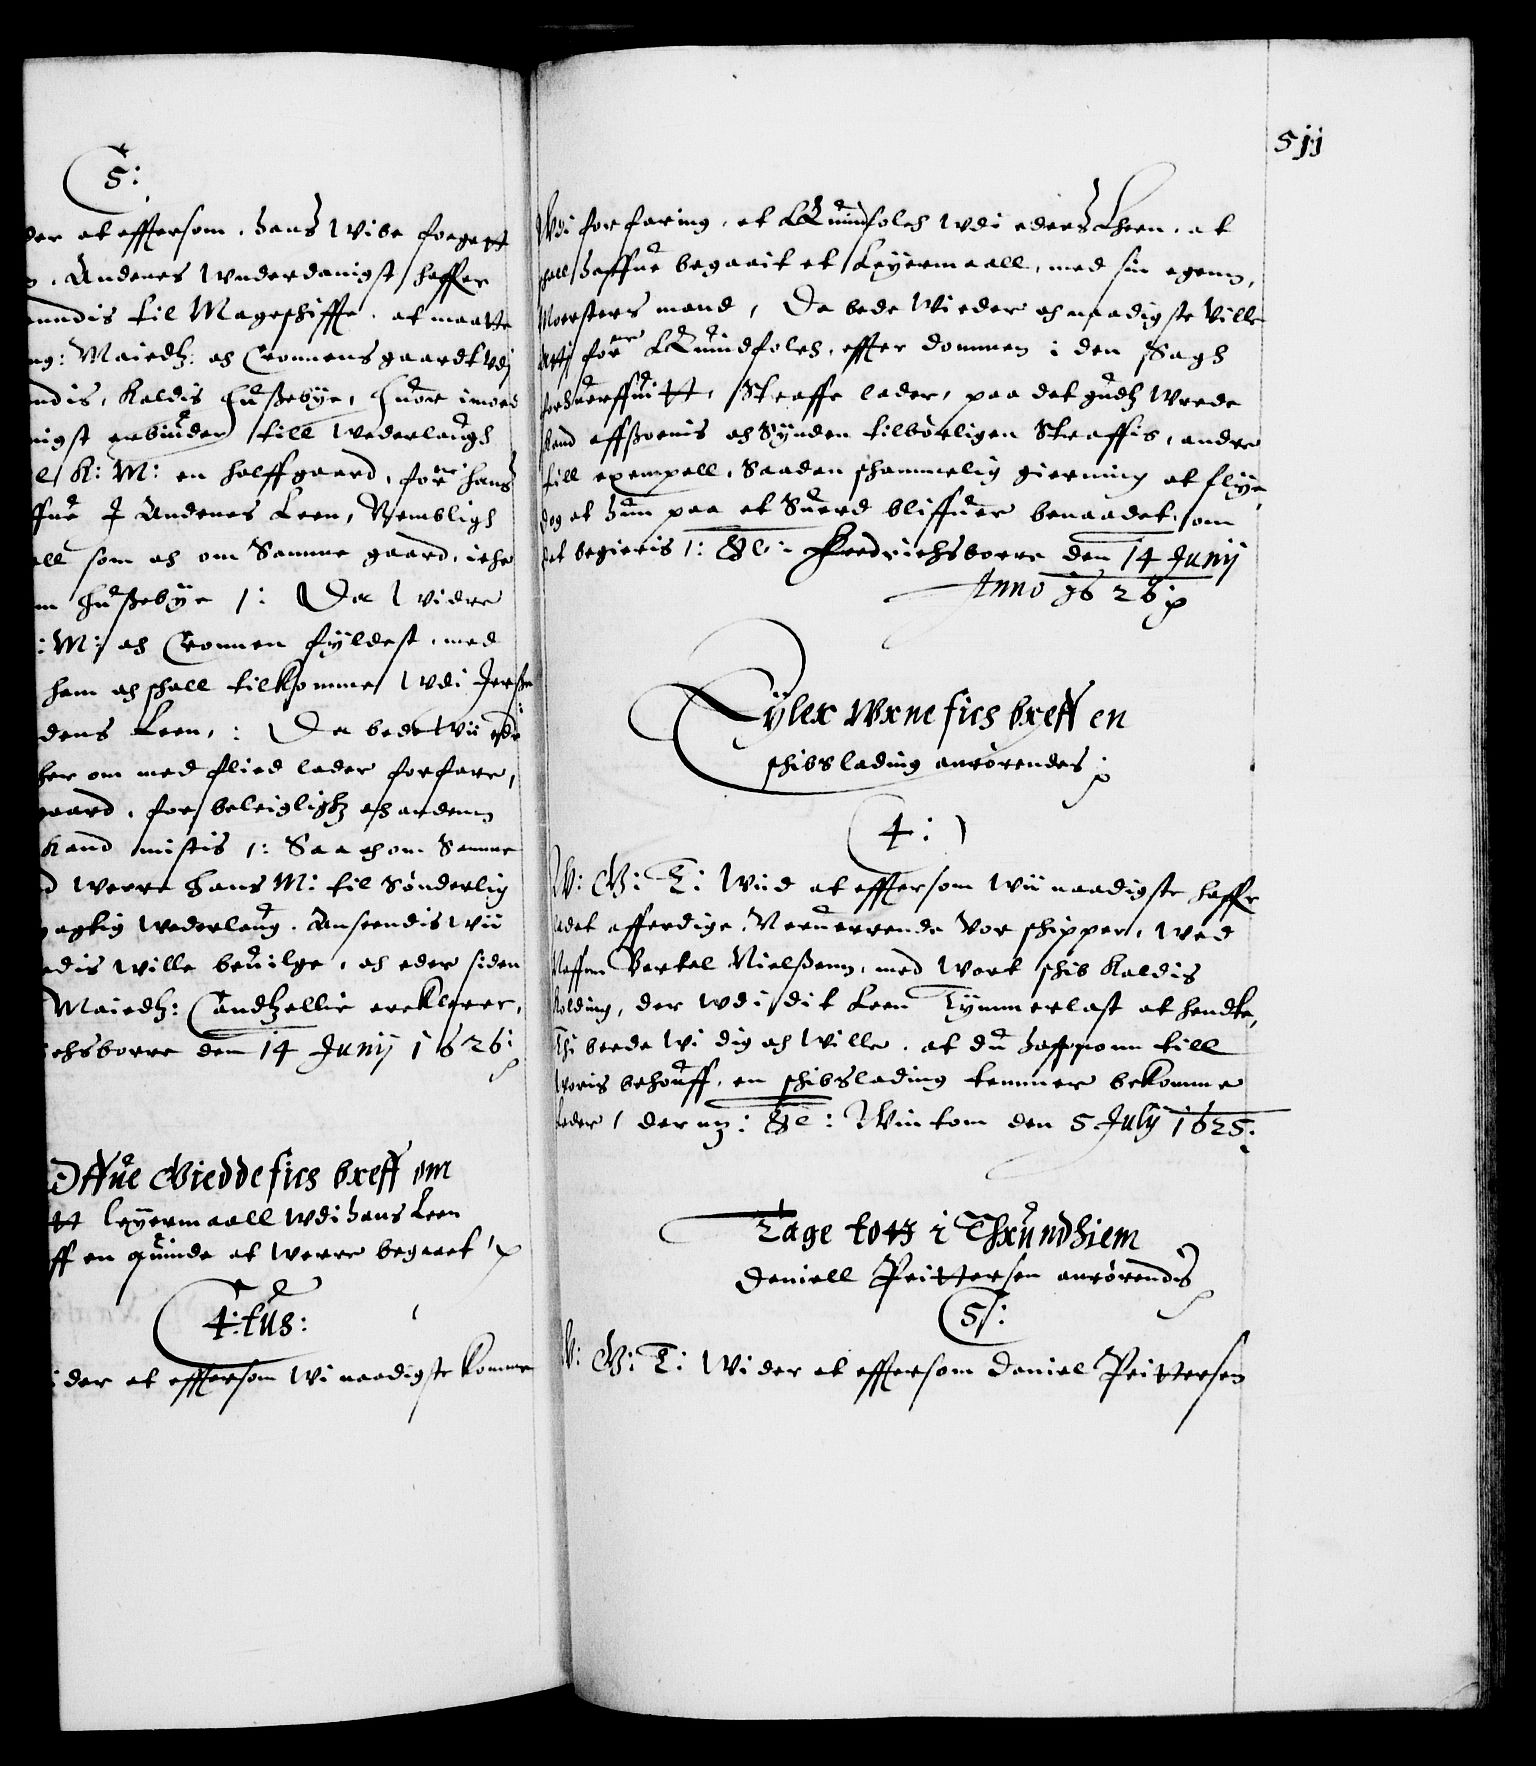 5:
der at effterson, Hans Wibe foegett
Andenes Wnderdanigst haffer
undis til Mageschiffte, at maatte
ng: Maiedtz: och Cronens gaardt Vdj
ndis, Kaldis Huszebye, huor imod
nigst erbiuder till Wederlaugh
l K: M: en halff gaard, for:ne Hans
ffue J Andenes Leen, Nemblich
all som och om Samme gaard, iche
m Huszebye /: Da Widre
: M: och Cronen fyldest, med
ham och schall tilkomme Wdi Jersze
dens Leen, : Da bede Wii eder
her om med flied lader forfare,
gaard, for beleiglighz och anden
Kand mistis /: Saa och om Samme
d Werre Hans M: til Sønderlig
agtig Wederlaug. Anseendis Wii
edis Wille beuilge, och eder siden
Maiedtz: Candtzellie erklerer,
ichsborre den 14 Junij 1626:
Offue Giedde fick breff om
tt leyermaall Wdi hans Leen
ff en quinde at Werre begaaet
4:tus:
der at effterson Wi naadigste komme
511
Wdi forfaring, at Et Quindfolch Wdi eders Lheen, at
schall haffue begaait et Leyermaall, med sin egenn,
Moersters mand, Da bede Wi eder och naadigste Ville
att i for:ne Quindfolch, effter dommen i den Sagh
forhuerffuitt, Straffe lader, paa det gudtz Wrede
Kand affszonis och Synden tilbørligen Straffis, andre
till exempell, Saaden schammelig gierning at flye,
dog at hun paa et Suerd bliffuer benaadet, om
det begieris /: &c: Fredrichsborre den 14 Junij
Anno 1626
Tyler Wrne fick breff en
schibslading anrørendes
4:
W: G: T: Wiid at effterson Wii naadigste haffe
ladet afferdige, Neruerrende Vor schipper, Wed
Naffn Bertel Nielszenn, med Wort schib Kaldis
Kolding, der Wdi dit Leen Tymmerlast at hendte,
Thi beede Wi dig och Wille, at du hannom till
Woris behouff, en schibslading temmer bekomme
leder / der m: &c: Wintom den 5 July 1625:
Tage tott i Thrundhiem
Daniell Peittersen anrørendis
5:
W: G: T: Wi der at effterson Daniel Peittersen